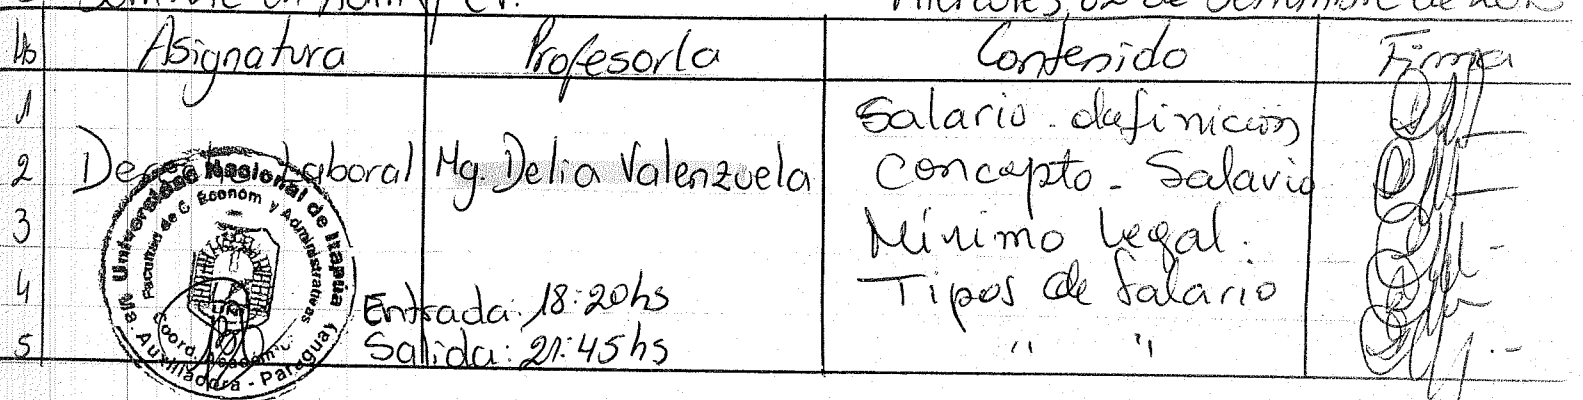 Miércoles, 02 de de
Asignatura Profesor/a Contenido Firma
1 Salario. definición
2 Laboral Mg. Delia Valenzuela Concepto - Salario
3 Mínimo Legal.
4 Entrada: 18:20hs Tipos de Salario
5 Salida: 21:45hs " "
Universidad Nacional de Itapúa
Facultad de C. Econom y Administrativas
Coord.
Ma. Auxiliadora - Paraguay